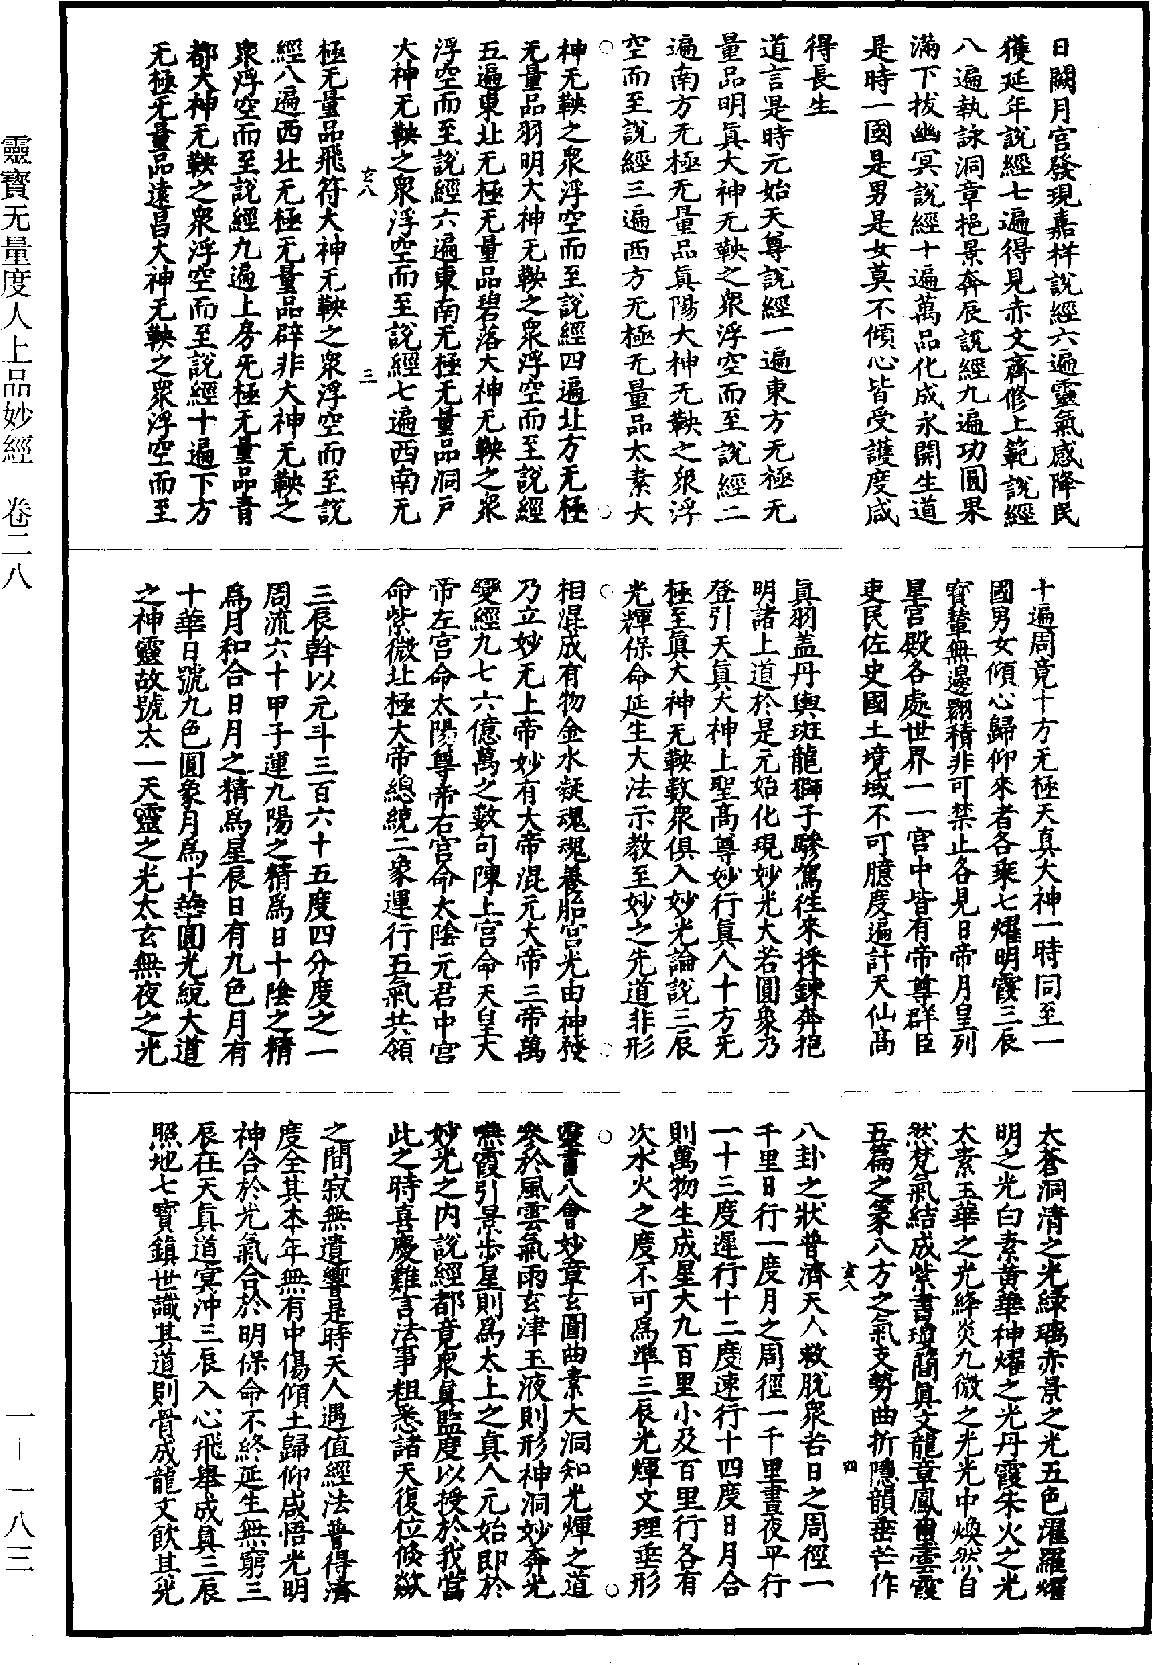 日闕月宮發現嘉祥說經六遍靈氣感降民
獲延年說經七遍得見赤文齋修上範說經
八遍執詠洞章挹景奔辰說經九遍功圓果
滿下拔幽冥說經十遍萬品化成永開生道
是時一國是男是女莫不傾心皆受護度咸
得長生
道言是時元始天尊說經一遍東方无極无
量品明真大神无鞅之衆浮空而至說經二
遍南方无極无量品真陽大神无鞅之衆浮
空而至說經三遍西方无極无量品太素大
神无鞅之衆浮空而至說經四遍北方无極
无量品羽明大神无鞅之衆浮空而至說經
五遍東北无極无量品碧落大神无鞅之衆
浮空而至說經六遍東南无極无量品洞戶
大神无鞅之衆浮空而至說經七遍西南无
玄八 三
極无量品飛符大神无鞅之衆浮空而至說
經八遍西北无極无量品辟非大神无鞅之
衆浮空而至說經九遍上方无極无量品青
都大神无鞅之衆浮空而至說經十遍下方
无極无量品遠昌大神无鞅之衆浮空而至
十遍周竟十方无極天真大神一時同至一
國男女傾心歸仰來者各乘七耀明霞三辰
寶輦無邊翺積非可禁止各見日帝月皇列
星宮殿各處世界一一宮中皆有帝尊群臣
吏民佐史國土境域不可臆度遍計天仙高
真羽盖丹輿斑龍獅子驂駕往來採鍊奔挹
明諸上道於是元始化現妙光大若圓象乃
登引天真大神上聖高尊妙行真人十方无
極至真大神无鞅數衆俱入妙光論說三辰
光輝保命延生大法示教至妙之先道非形
相混成有物金水凝魂魂養胎宮光由神發
乃立妙无上帝妙有大帝混元大帝三帝萬
變經九七六億萬之數句陳上宮命天皇大
帝左宮命太陽尊帝右宮命太陰元君中宮
命紫微北極大帝總統二象運行五氣共領
三辰斡以元斗三百六十五度四分度之一
周流六十甲子運九陽之精爲日十陰之精
爲月和合日月之精爲星辰日有九色月有
十華日號九色圓象月爲十華圓光統大道
之神靈故號太一天靈之光太玄無夜之光
太蒼洞清之光綠璃赤景之光五色濯羅耀
明之光白素黃華神耀之光丹霞朱火之光
太素玉華之光絳炎九微之光光中煥然自
然梵氣結成紫書瓊簡真文龍章鳳書雲霞
五篇之篆八方之氣支勢曲折隱韻垂芒作
玄八 四
八卦之狀普濟天人救脫衆苦日之周徑一
千里日行一度月之周徑一千里晝夜平行
一十三度遲行十二度速行十四度日月合
則萬物生成星大九百里小及百里行各有
次水火之度不可爲準三辰光輝文理垂形
靈書八會妙章玄圖曲素大洞知光輝之道
參於風雲氣雨玄津玉液則形神洞妙奔光
噏霞引景步星則爲太上之真人元始即於
妙光之內說經都竟衆真監度以授於我當
此之時喜慶難言法事粗悉諸天復位倐歘
之間寂無遺響是時天人遇值經法普得濟
度全其本年無有中傷傾土歸仰咸悟光明
神合於光氣合於明保命不終延生無窮三
辰在天真道冥沖三辰入心飛舉成真三辰
照地七寶鎮世識其道則骨成龍文飲其光
靈寶无量度人上品妙經 卷二八
一—一八三